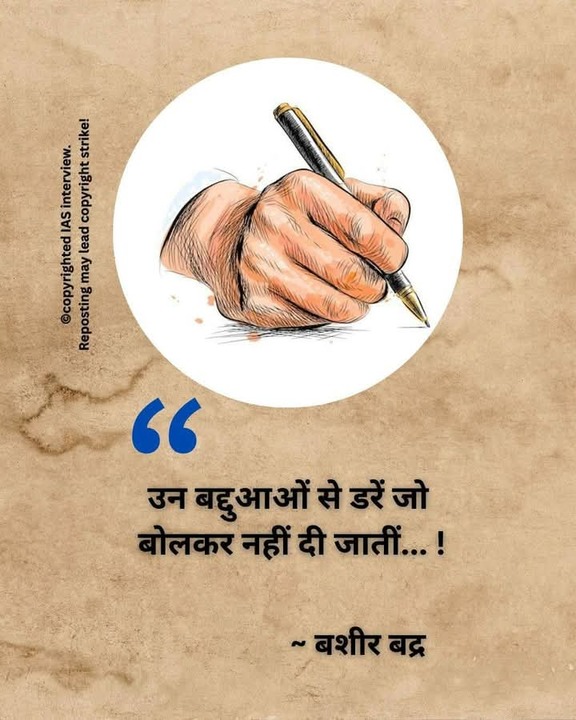 ©copyrighted IAS interview.
Reposting may lead copyright strike!
“
उन बद्दुआओं से डरें जो
बोलकर नहीं दी जातीं... !
~ बशीर बद्र